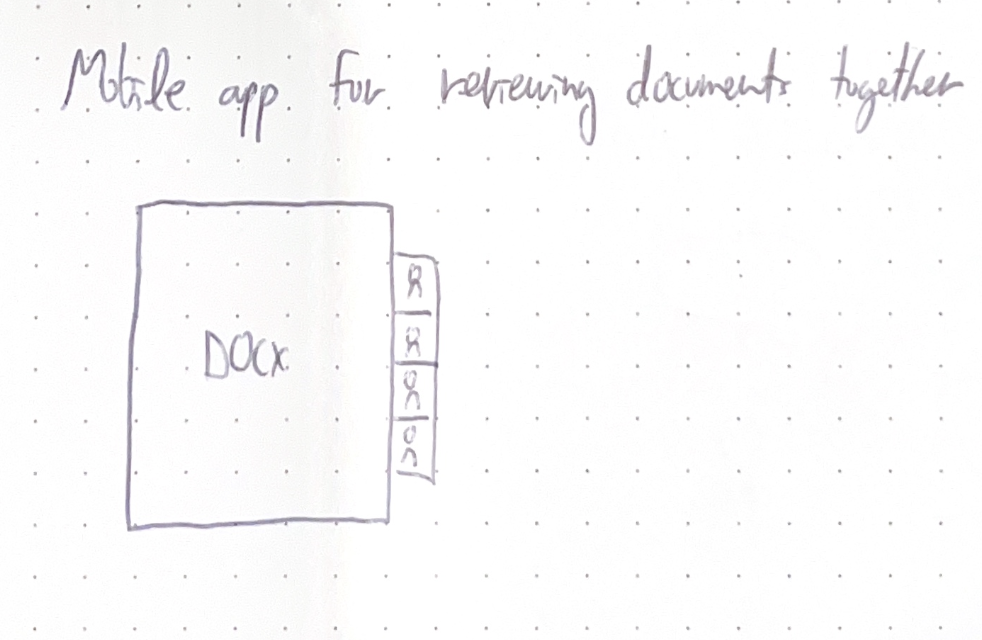 Mobile app for reviewing documents together
DOCX